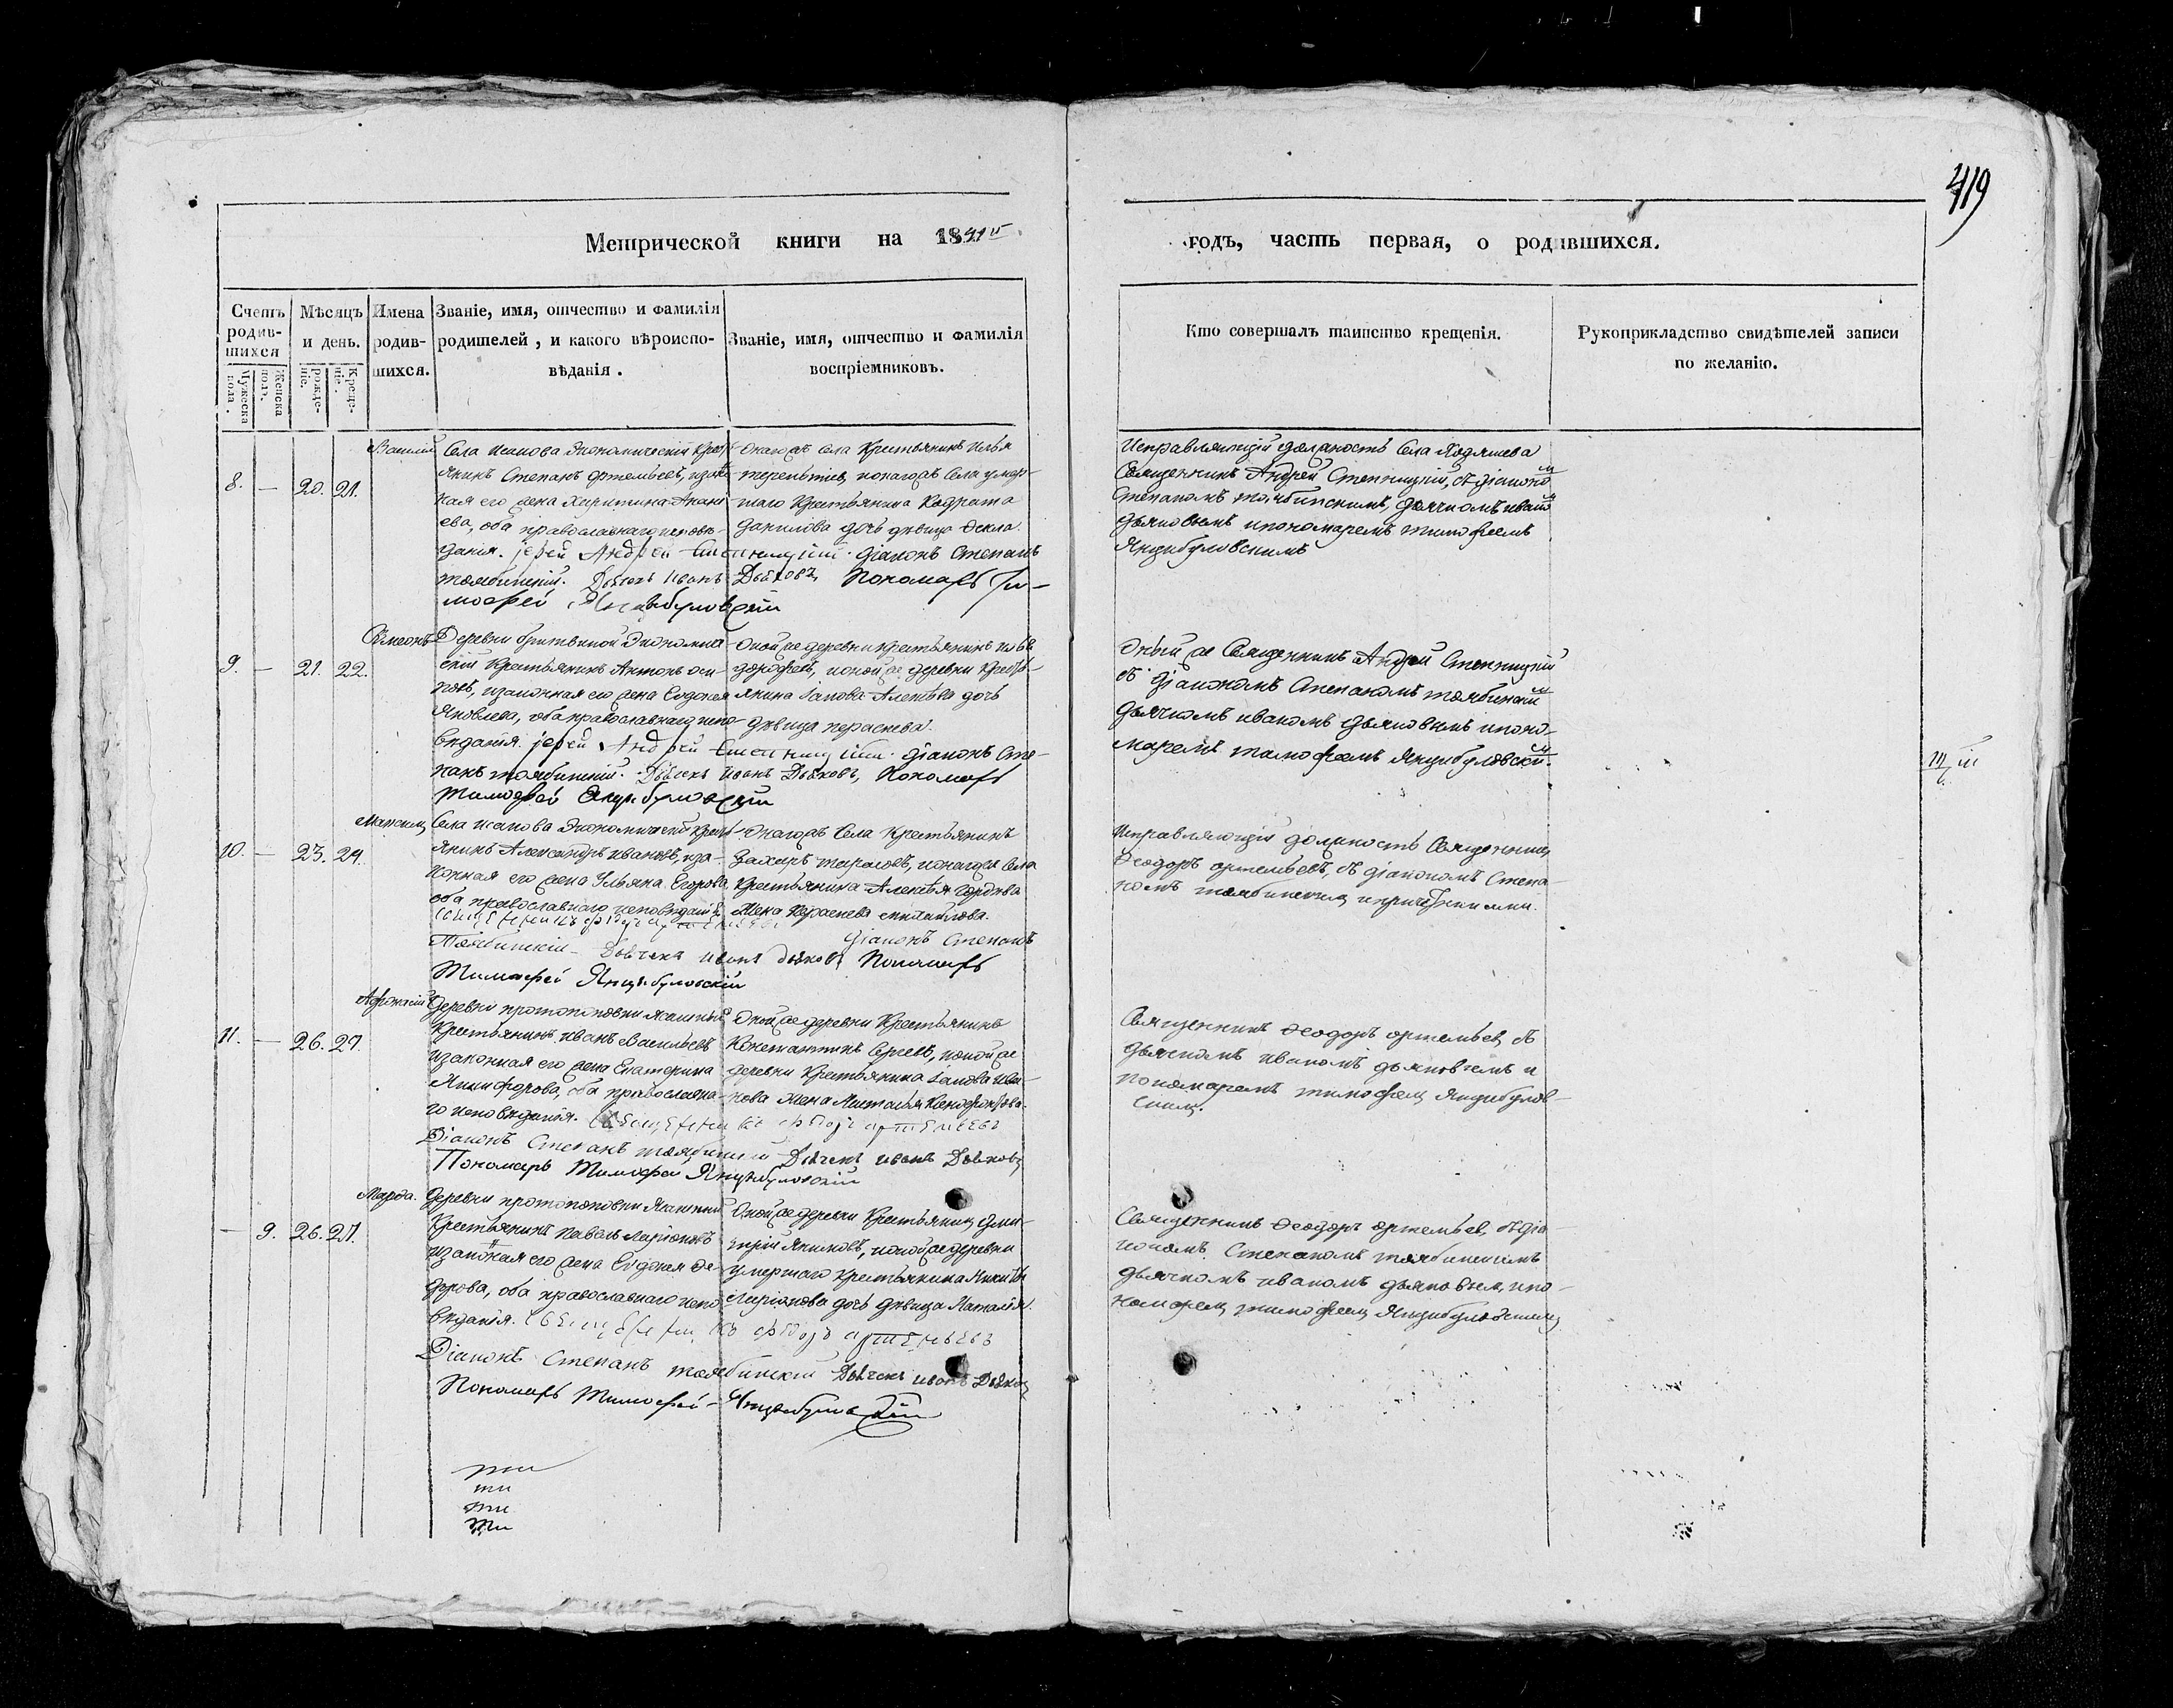 419
Метрической книги на 1841й
годъ, часть первая, о родившихся.
Счетъ родив-шихся
Мужеска пола.
Женска пола.
Мѣсяцъ и день.
рожде-ніе.
Креще-ніе.
Имена родив-шихся.
Званіе, имя, отчество и фамилія
родителей, и какого вѣроиспо-
вѣданія.
Званіе, имя, отчество и фамилія
воспріемниковъ.
Кто совершалъ таинство крещенія.
Рукоприкладство свидѣтелей записи
по желанію.
8. — 20. 21.
Василій
Села Исакова Экономическій Крест
янинъ Степанъ Артемьевъ, изакон
ная его жена Харитина Анань
ева, оба православнаго исповѣ
данія. іерей Андрей діаконъ Степанъ
Тоябинскій. Дьячекъ Иванъ Дьяковъ, Пономарь Ти-
мофей Янцибуловскій
Онагожъ села Крестьянинъ Илья
Терентіев, ионагожъ Села умер-
шаго Крестьянина Кодрата
Данилова дочь дѣвица Ѳекла.
Исправляющій должность Села Ходяшева
Священникъ Андрей, съ діакono
Степаномъ Тоябинскимъ, дьячкомъ иваno
дьяковымъ ипономаремъ тимофеемъ
Янцибуловскимъ
9. — 21. 22.
Симеонъ
Деревни Экономиче
скій Крестьянинъ Антонъ оси
повъ, изаконная его жена Евдокея
Яковлева, оба православнаго испо
вѣданія. іерей Андрей діаконъ Сте-
панъ тоябинскій. Дьячекъ Иванъ Дьяковъ, Пономарь
Тимофей Янцибуловскій
Онойже деревни крестьянинъ
дорофеевъ, ионойже деревни Кресть-
янина Iакова Алексѣева дочь
дѣвица параскева.
Оный же Священникъ Андрей
съ діакономъ Степаномъ тоябински
дьячкомъ иваномъ дьяковымъ ипоно-
маремъ тимофеемъ Янцибуловски.
10. — 23. 24.
Максим
Села исакова Экономическій Крест
янинъ Александръ ивановъ, иза-
конная его жена Ульяна Егорова
оба православнаго исповѣданія.
Онагожъ Села Крестьянинъ
Захаръ тарасовъ, ионагоже Села
Крестьянина Алексѣя
жена Параскева михайлова.
діаконъ Степанъ
Тоябинскій Дьячекъ Иванъ Дьяковъ Пономарь
Тимофей Янцибуловскій
Исправляющій должность Священник
Ѳеодоръ артемьевъ, съ діакономъ Степа-
номъ тоябинским ипричетниками.
11. — 26. 27.
Афанасій
Деревни протопоповки
Крестьянинъ иванъ Васильевъ
изаконная его жена Екатерина
Никифорова, оба православна-
го исповѣданія. Священникъ Феодоръ Артемьевъ
Діаконъ Степанъ тоябинскій Дьячекъ иванъ Дьяковъ
Пономарь Тимофей Янцибуловскій
Онойже деревни Крестьянинъ
Константинъ Сергеевъ, ионойже
деревни Крестьянина Iакова Ива-
нова жена
Священникъ Ѳеодоръ артемьев съ
дьячкомъ иваномъ дьяковымъ и
пономаремъ тимофеем Янцибулов-
ским.
— 9. 26. 27.
Марфа.
Деревни протопоповки
Крестьянинъ Павелъ Ларіоновъ
изаконная его жена Евдокея Ѳе-
дорова, оба православнаго испо-
вѣданія. Священникъ Феодоръ Артемьевъ
Діаконъ Степанъ тоябинскій Дьячекъ иванъ Дьяков
Пономарь Тимофей Янцибуловскій
Онойже деревни Крестьянин Дми-
трій Якимовъ, ионойжедеревни
умершаго крестьянина Никиты
Ларіонова дочь дѣвица Наталія.
Священникъ Ѳеодоръ артемьев, съ діа-
кономъ Степаномъ тоябинскимъ
дьячкомъ иваномъ дьяковым, ипо-
номарем тимофеем Янцибуловским